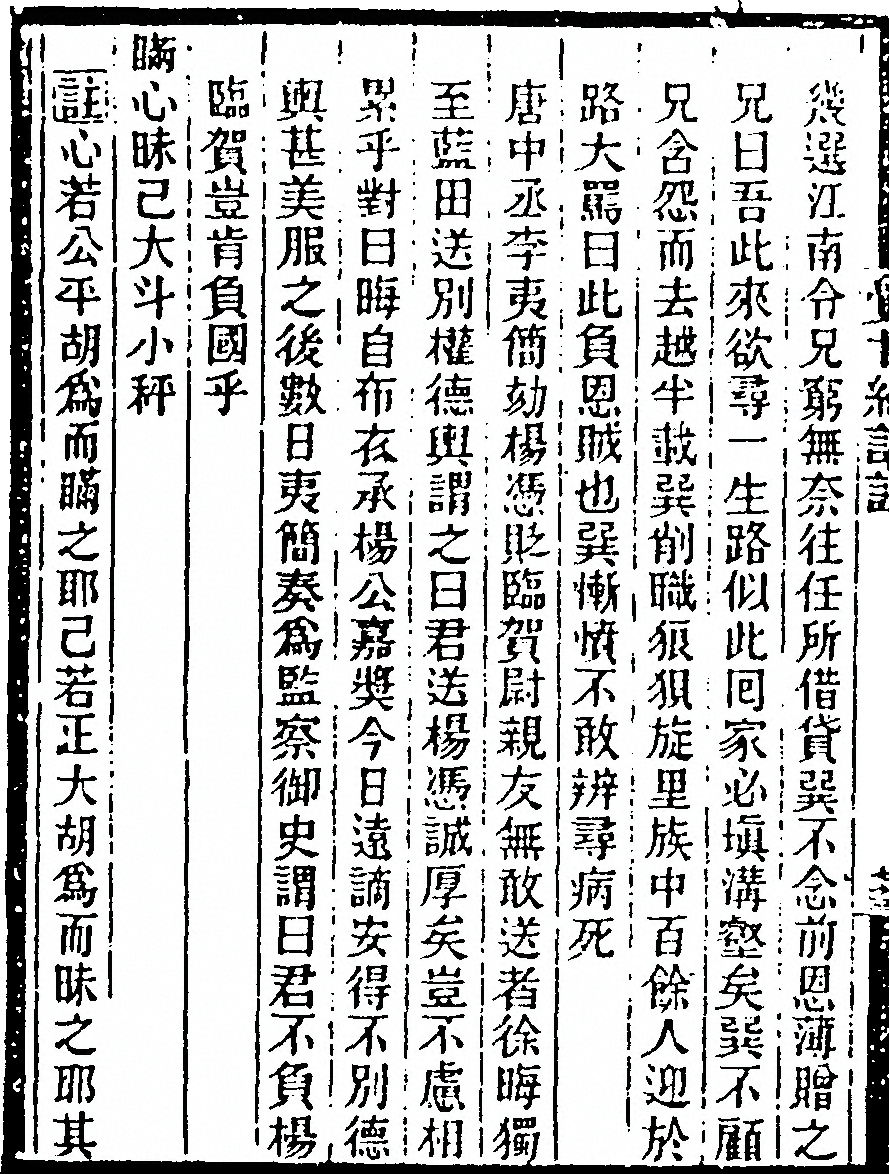 幾選江南令兄窮無奈往任所借貸巽不念前恩薄贈之
兄曰吾此來欲尋一生路似此囘家必塡溝壑矣巽不顧
兄含怨而去越半載巽削職狼狽旋里族中百餘人迎於
路大罵曰此負恩賊也巽慚憤不敢辨尋病死
唐中丞李夷簡劾楊憑貶臨賀尉親友無敢送者徐晦獨
至藍田送別權德輿謂之曰君送楊憑誠厚矣豈不慮相
累乎對曰晦自布衣承楊公嘉獎今日遠謫安得不別德
輿甚美服之後數日夷簡奏爲監察御史謂曰君不負楊
臨賀豈肯負國乎
瞞心昧己大斗小秤
註心若公平胡爲而瞞之耶己若正大胡爲而昧之耶其